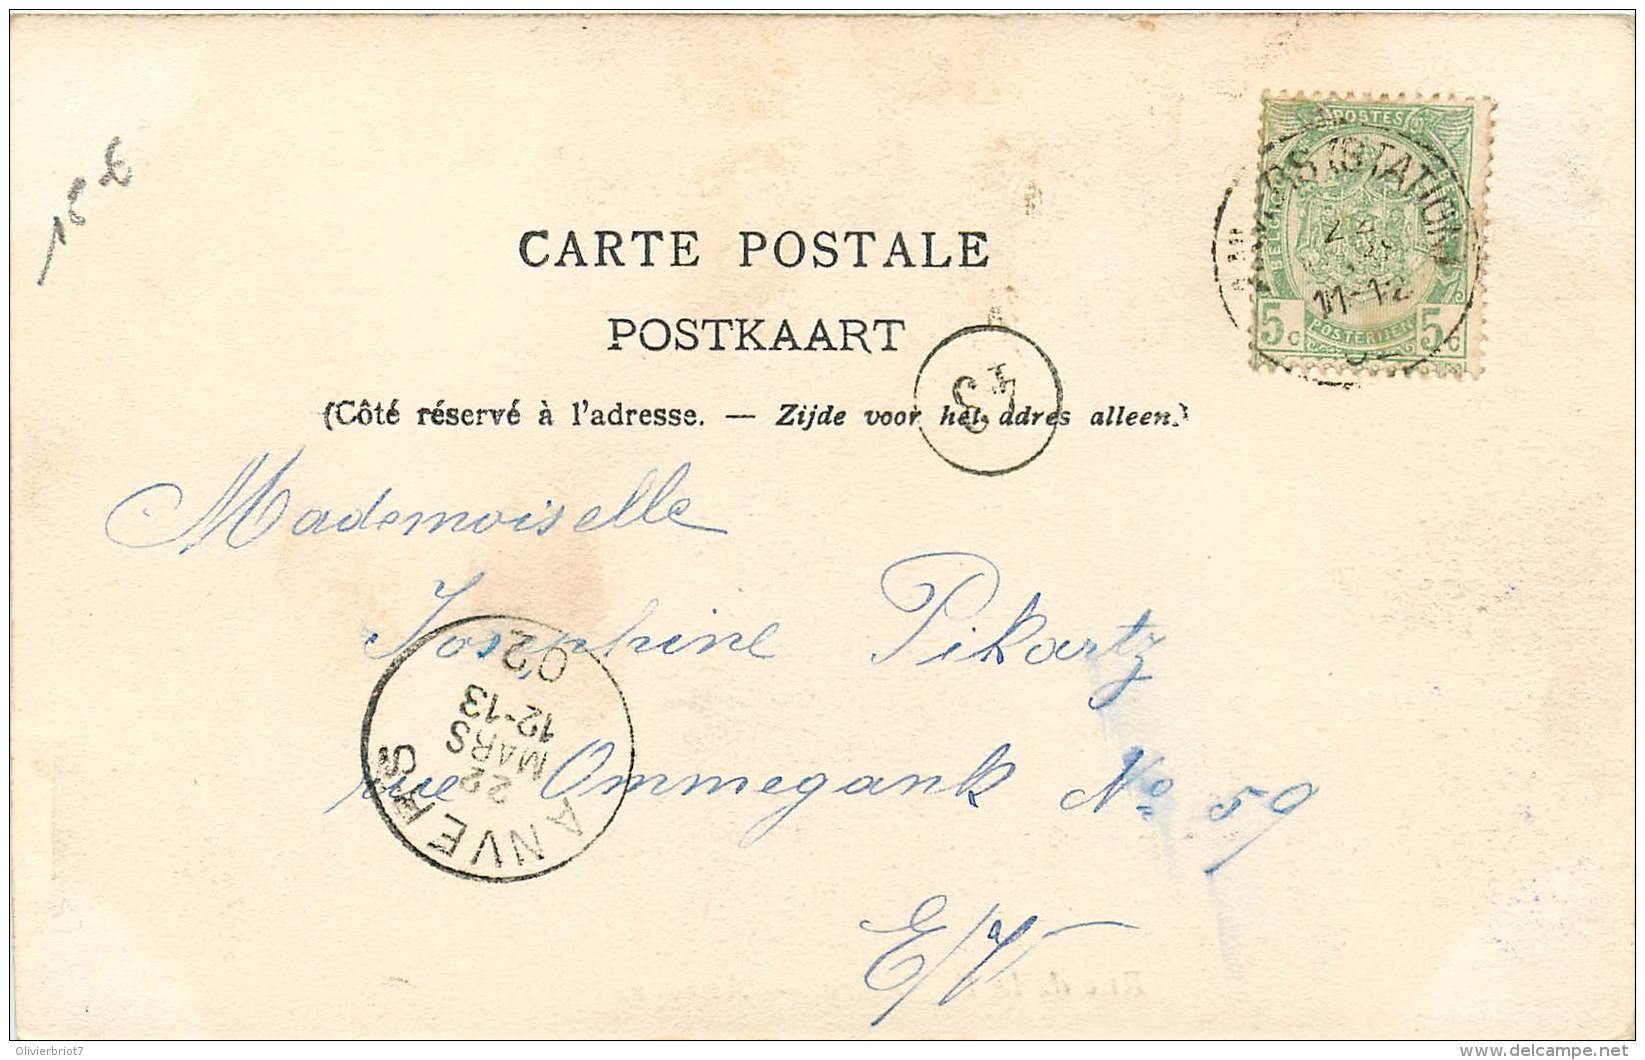 CARTE POSTALE
POSTKAART
(Côté réservé à l'adresse. — Zijde voor het adres alleen.)
POSTES
5c POSTERIJEN 5c
(STATION)
22
11-12
Mademoiselle
Josephine Pikartz
rue Ommegank No 59
E/V
ANVERS
22
MARS
12-13
02
Olivierbriot7
delcampe.net